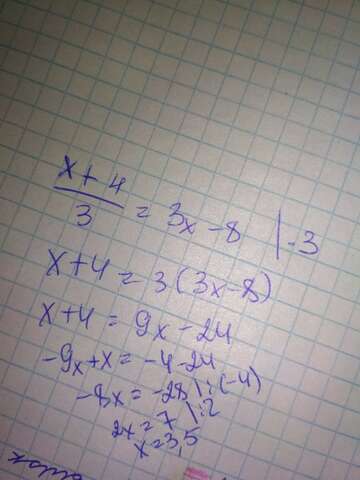 x+4
3
= 3x-8 |·3
x+4 = 3(3x-8)
x+4 = 9x-24
-9x+x = -4-24
-8x = -28 |:(-4)
2x = 7 |:2
x=3,5